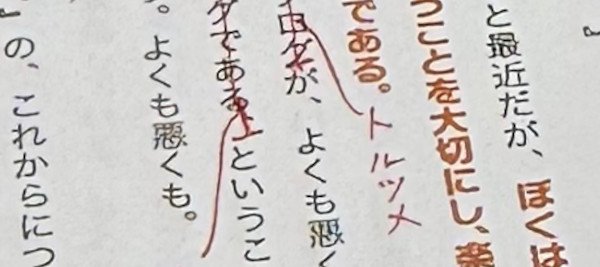 と最近だが、ぼくは
つことを大切にし、楽
である。
トルツメ
ダが、よくも悪く
ダである
というこ
。よくも悪くも。
』の、これからにつ